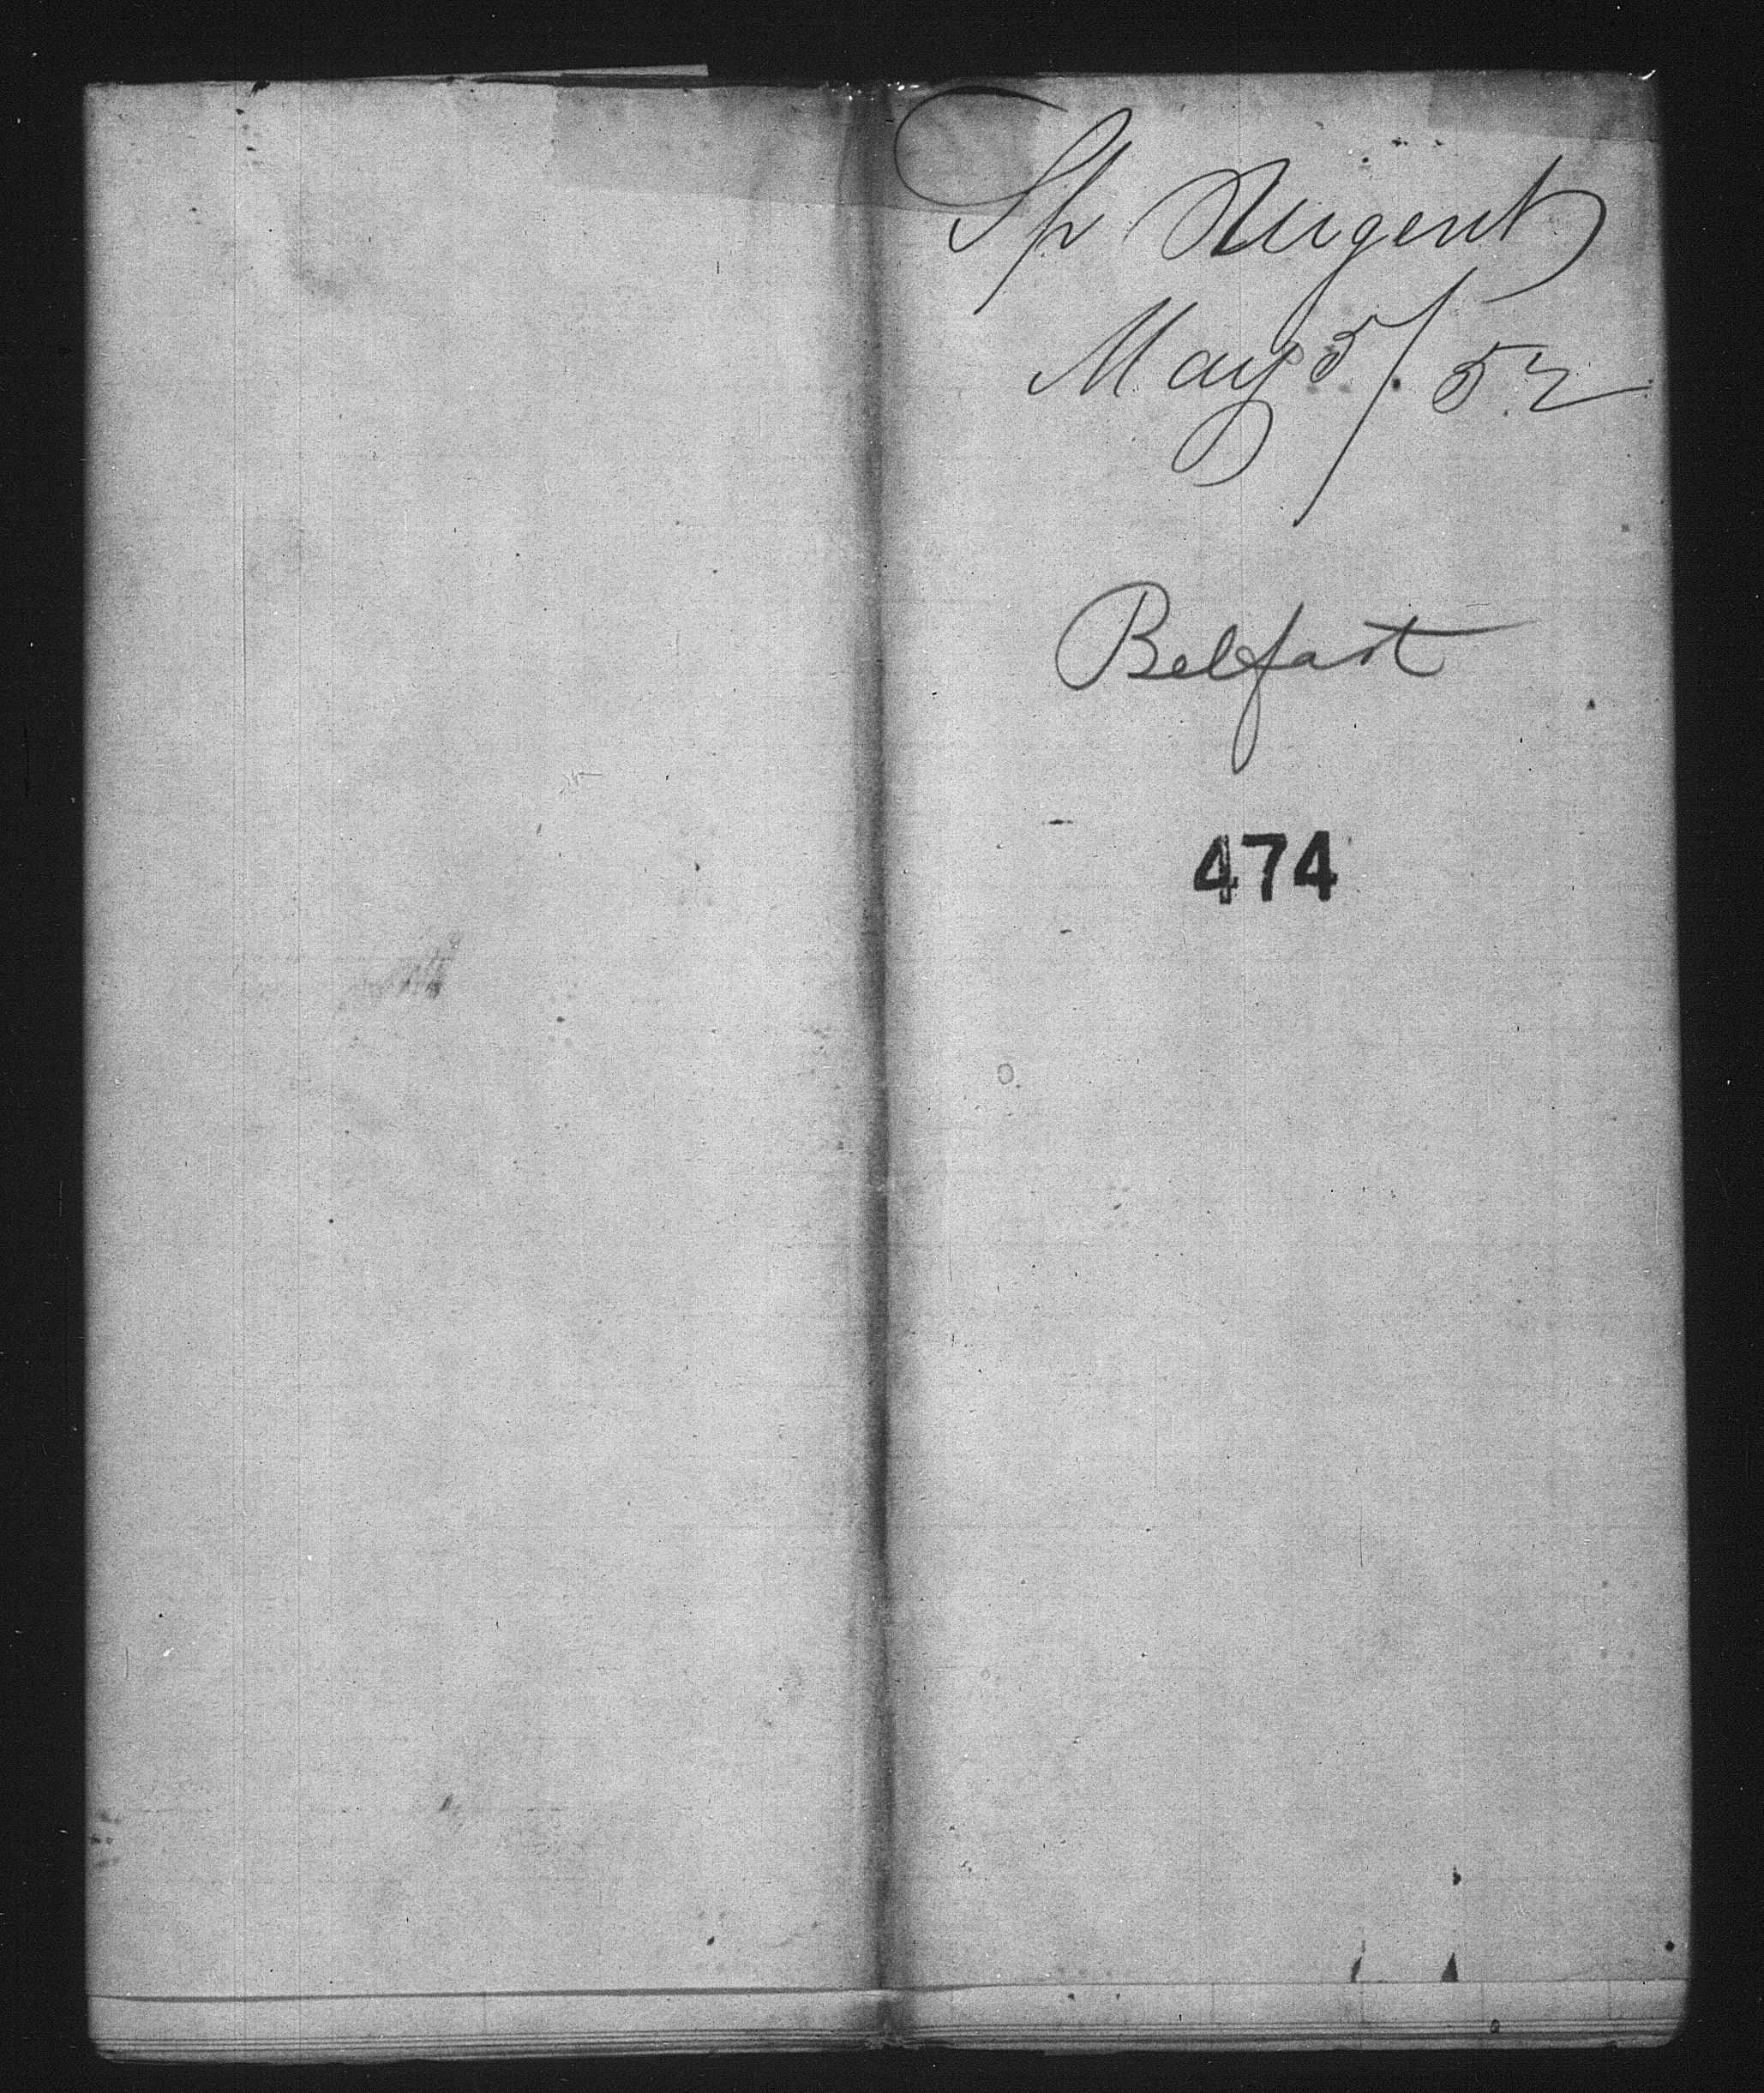 Sh Nugent
May 5/52
Belfast
474